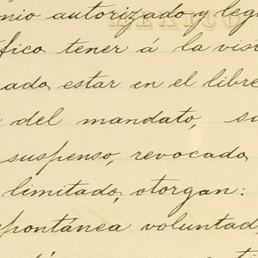 nio autorizado y leg
fico tener á la vist
ado estar en el libre
del mandato, su
suspenso, revocado
limitado, otorgan:
pontánea voluntad,